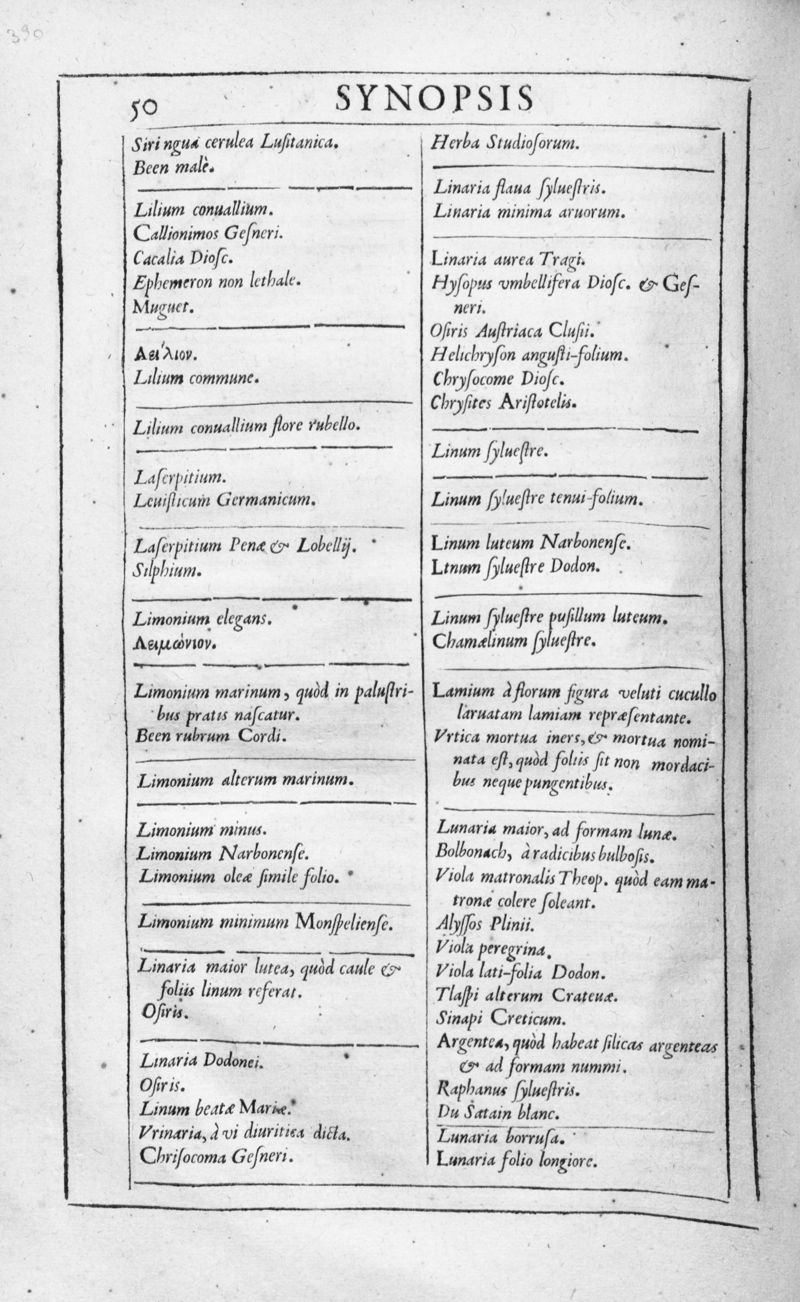 390
50
SYNOPSIS
Siringua cerulea Luſitanica.
Been malè.
Lilium conuallium.
Callionimos Geſneri.
Cacalia Dioſc.
Ephemeron non lethale.
Muguet.
Λειλιον.
Lilium commune.
Lilium conuallium flore rubello.
Laſerpitium.
Leuiſticum Germanicum.
Laſerpitium Penæ & Lobellij.
Silphium.
Limonium elegans.
Λειμώνιον.
Limonium marinum, quòd in paluſtri-
bus pratis naſcatur.
Been rubrum Cordi.
Limonium alterum marinum.
Limonium minus.
Limonium Narbonenſe.
Limonium oleæ ſimile folio.
Limonium minimum Monſpelienſe.
Linaria maior lutea, quòd caule &
foliis linum referat.
Oſiris.
Linaria Dodonei.
Oſiris.
Linum beatæ Mariæ.
Vrinaria, à vi diuritica dicta.
Chriſocoma Geſneri.
Herba Studioſorum.
Linaria flaua ſylueſtris.
Linaria minima aruorum.
Linaria aurea Tragi.
Hyſopus vmbellifera Dioſc. & Geſ-
neri.
Oſiris Auſtriaca Cluſii.
Helichryſon anguſti-folium.
Chryſocome Dioſc.
Chryſites Ariſtotelis.
Linum ſylueſtre.
Linum ſylueſtre tenui-folium.
Linum luteum Narbonenſe.
Ltnum ſylueſtre Dodon.
Linum ſylueſtre puſillum luteum.
Chamælinum ſylueſtre.
Lamium à florum figura veluti cucullo
laruatam lamiam repræſentante.
Vrtica mortua iners, & mortua nomi-
nata eſt, quòd foliis ſit non mordaci-
bus neque pungentibus.
Lunaria maior, ad formam lunæ.
Bolbonach, à radicibus bulboſis.
Viola matronalis Theop. quòd eam ma-
tronæ colere ſoleant.
Alyſſos Plinii.
Viola peregrina.
Viola lati-folia Dodon.
Tlaſpi alterum Crateuæ.
Sinapi Creticum.
Argentea, quòd habeat ſilicas argenteas
& ad formam nummi.
Raphanus ſylueſtris.
Du Satain blanc.
Lunaria borruſa.
Lunaria folio longiore.